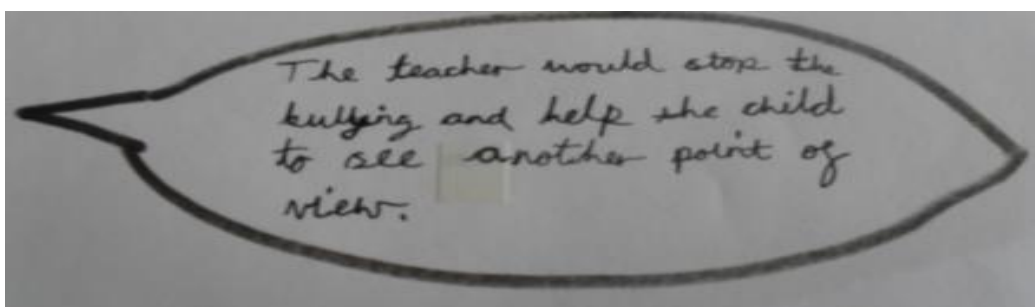 The teacher would stop the
bullying and help the child
to see another point of
view.